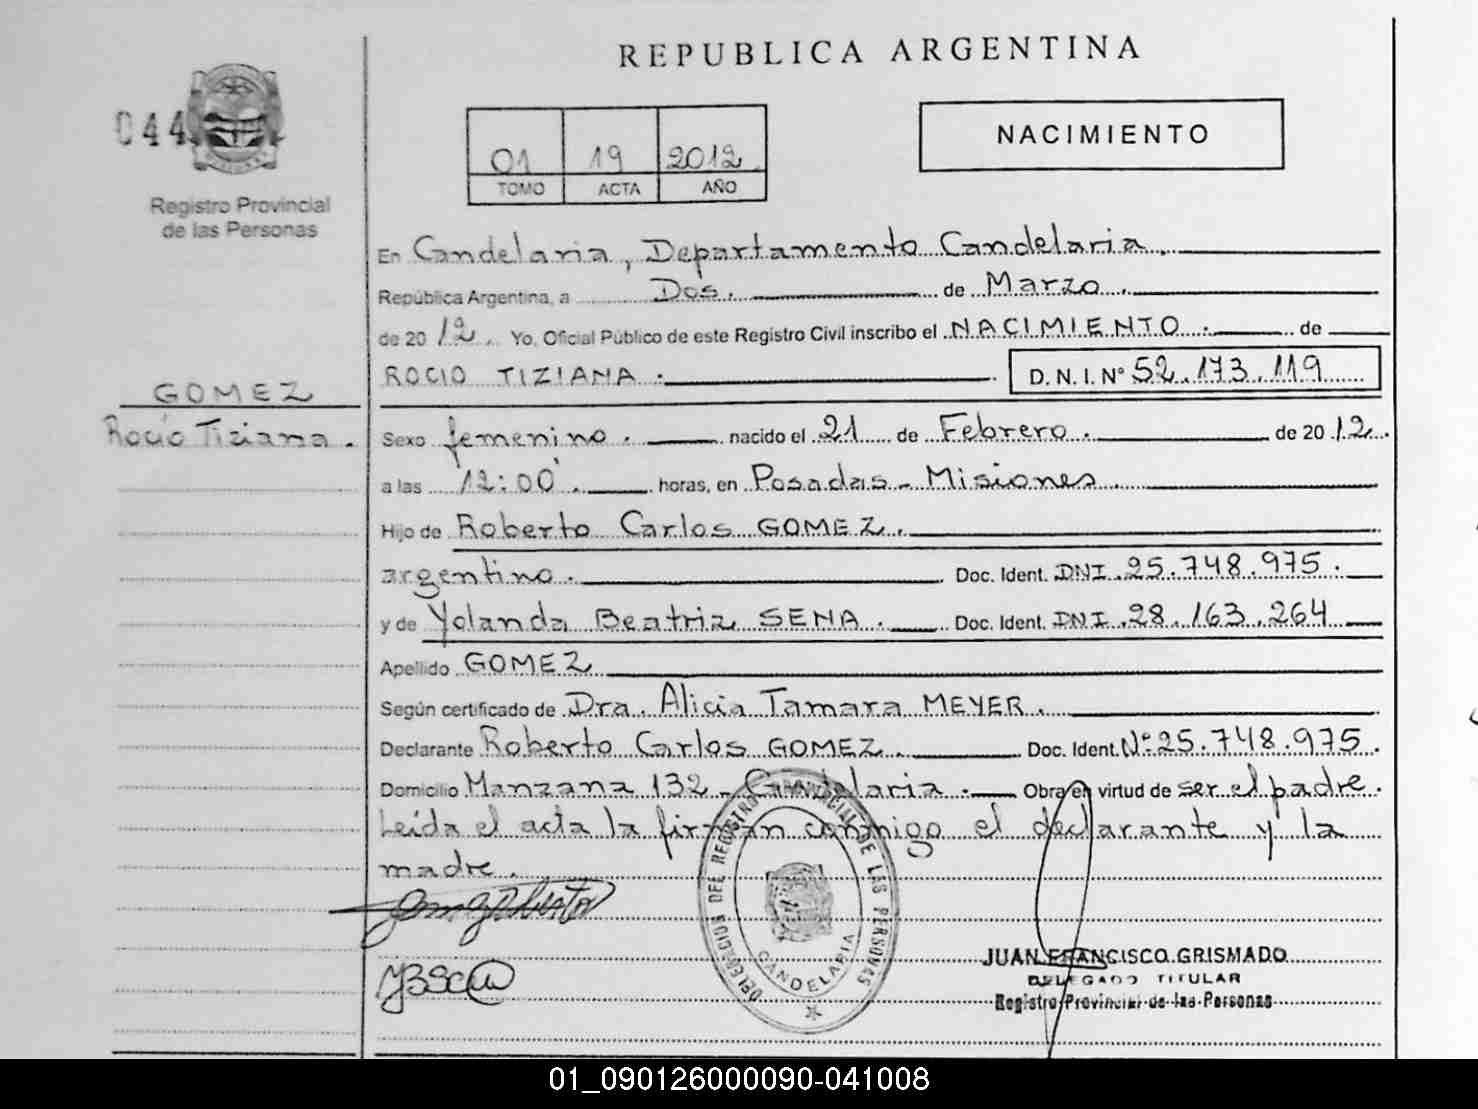 REPUBLICA ARGENTINA
044
Registro Provincial
de las Personas
01 19 2012
TOMO ACTA AÑO
NACIMIENTO
En Candelaria, Departamento Candelaria.
República Argentina, a Dos. de Marzo.
de 2012. Yo, Oficial Público de este Registro Civil inscribo el NACIMIENTO. de
ROCIO TIZIANA. D.N.I. N° 52.173.119
GOMEZ
Rocio Tiziana.
Sexo femenino. nacido el 21 de Febrero. de 2012.
a las 12:00. horas, en Posadas - Misiones.
Hijo de Roberto Carlos GOMEZ.
argentino. Doc. Ident. DNI. 25.748.975.
y de Yolanda Beatriz SENA. Doc. Ident. DNI. 28.163.264
Apellido GOMEZ
Según certificado de Dra. Alicia Tamara MEYER.
Declarante Roberto Carlos GOMEZ. Doc. Ident. N° 25.748.975.
Domicilio Manzana 132 - Candelaria. Obra en virtud de ser el padre.
Leída el acta la firman conmigo el declarante y la
madre.
DELEGACION DEL REGISTRO PROVINCIAL DE LAS PERSONAS
CANDELARIA
JUAN FRANCISCO GRISMADO
DELEGADO TITULAR
Registro Provincial de las Personas
01_090126000090-041008